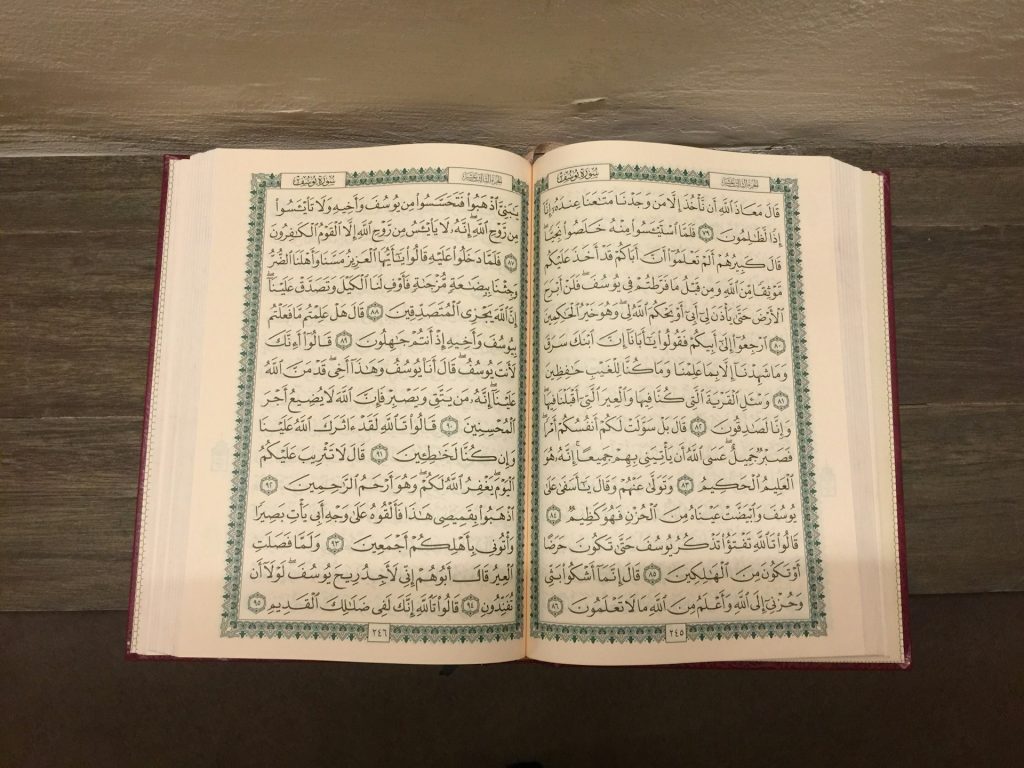 سورة يوسف
الجزء الثالث عشر
قَالَ مَعَاذَ ٱللَّهِ أَن نَّأْخُذَ إِلَّا مَن وَجَدْنَا مَتَٰعَنَا عِندَهُۥٓ إِنَّآ
إِذًا لَّظَٰلِمُونَ ٧٩ فَلَمَّا ٱسْتَيْـَٔسُوا۟ مِنْهُ خَلَصُوا۟ نَجِيًّا
قَالَ كَبِيرُهُمْ أَلَمْ تَعْلَمُوٓا۟ أَنَّ أَبَاكُمْ قَدْ أَخَذَ عَلَيْكُم
مَّوْثِقًا مِّنَ ٱللَّهِ وَمِن قَبْلُ مَا فَرَّطتُمْ فِى يُوسُفَ فَلَنْ أَبْرَحَ
ٱلْأَرْضَ حَتَّىٰ يَأْذَنَ لِىٓ أَبِىٓ أَوْ يَحْكُمَ ٱللَّهُ لِى وَهُوَ خَيْرُ ٱلْحَٰكِمِينَ
٨٠ ٱرْجِعُوٓا۟ إِلَىٰٓ أَبِيكُمْ فَقُولُوا۟ يَٰٓأَبَانَآ إِنَّ ٱبْنَكَ سَرَقَ
وَمَا شَهِدْنَآ إِلَّا بِمَا عَلِمْنَا وَمَا كُنَّا لِلْغَيْبِ حَٰفِظِينَ
٨١ وَسْـَٔلِ ٱلْقَرْيَةَ ٱلَّتِى كُنَّا فِيهَا وَٱلْعِيرَ ٱلَّتِىٓ أَقْبَلْنَا فِيهَا
وَإِنَّا لَصَٰدِقُونَ ٨٢ قَالَ بَلْ سَوَّلَتْ لَكُمْ أَنفُسُكُمْ أَمْرًا
فَصَبْرٌ جَمِيلٌ عَسَى ٱللَّهُ أَن يَأْتِيَنِى بِهِمْ جَمِيعًا إِنَّهُۥ هُوَ
ٱلْعَلِيمُ ٱلْحَكِيمُ ٨٣ وَتَوَلَّىٰ عَنْهُمْ وَقَالَ يَٰٓأَسَفَىٰ عَلَىٰ
يُوسُفَ وَٱبْيَضَّتْ عَيْنَاهُ مِنَ ٱلْحُزْنِ فَهُوَ كَظِيمٌ ٨٤
قَالُوا۟ تَٱللَّهِ تَفْتَؤُا۟ تَذْكُرُ يُوسُفَ حَتَّىٰ تَكُونَ حَرَضًا
أَوْ تَكُونَ مِنَ ٱلْهَٰلِكِينَ ٨٥ قَالَ إِنَّمَآ أَشْكُوا۟ بَثِّى
وَحُزْنِىٓ إِلَى ٱللَّهِ وَأَعْلَمُ مِنَ ٱللَّهِ مَا لَا تَعْلَمُونَ ٨٦
٢٤٥
سورة يوسف
الجزء الثالث عشر
يَٰبَنِىَّ ٱذْهَبُوا۟ فَتَحَسَّسُوا۟ مِن يُوسُفَ وَأَخِيهِ وَلَا تَا۟يْـَٔسُوا۟
مِن رَّوْحِ ٱللَّهِ إِنَّهُۥ لَا يَا۟يْـَٔسُ مِن رَّوْحِ ٱللَّهِ إِلَّا ٱلْقَوْمُ ٱلْكَٰفِرُونَ
٨٧ فَلَمَّا دَخَلُوا۟ عَلَيْهِ قَالُوا۟ يَٰٓأَيُّهَا ٱلْعَزِيزُ مَسَّنَا وَأَهْلَنَا ٱلضُّرُّ
وَجِئْنَا بِبِضَٰعَةٍ مُّزْجَىٰةٍ فَأَوْفِ لَنَا ٱلْكَيْلَ وَتَصَدَّقْ عَلَيْنَآ
إِنَّ ٱللَّهَ يَجْزِى ٱلْمُتَصَدِّقِينَ ٨٨ قَالَ هَلْ عَلِمْتُم مَّا فَعَلْتُم
بِيُوسُفَ وَأَخِيهِ إِذْ أَنتُمْ جَٰهِلُونَ ٨٩ قَالُوٓا۟ أَءِنَّكَ
لَأَنتَ يُوسُفُ قَالَ أَنَا۠ يُوسُفُ وَهَٰذَآ أَخِى قَدْ مَنَّ ٱللَّهُ
عَلَيْنَآ إِنَّهُۥ مَن يَتَّقِ وَيَصْبِرْ فَإِنَّ ٱللَّهَ لَا يُضِيعُ أَجْرَ
ٱلْمُحْسِنِينَ ٩٠ قَالُوا۟ تَٱللَّهِ لَقَدْ ءَاثَرَكَ ٱللَّهُ عَلَيْنَا
وَإِن كُنَّا لَخَٰطِـِٔينَ ٩١ قَالَ لَا تَثْرِيبَ عَلَيْكُمُ
ٱلْيَوْمَ يَغْفِرُ ٱللَّهُ لَكُمْ وَهُوَ أَرْحَمُ ٱلرَّٰحِمِينَ ٩٢
ٱذْهَبُوا۟ بِقَمِيصِى هَٰذَا فَأَلْقُوهُ عَلَىٰ وَجْهِ أَبِى يَأْتِ بَصِيرًا
وَأْتُونِى بِأَهْلِكُمْ أَجْمَعِينَ ٩٣ وَلَمَّا فَصَلَتِ
ٱلْعِيرُ قَالَ أَبُوهُمْ إِنِّى لَأَجِدُ رِيحَ يُوسُفَ لَوْلَآ أَن
تُفَنِّدُونِ ٩٤ قَالُوا۟ تَٱللَّهِ إِنَّكَ لَفِى ضَلَٰلِكَ ٱلْقَدِيمِ ٩٥
٢٤٦